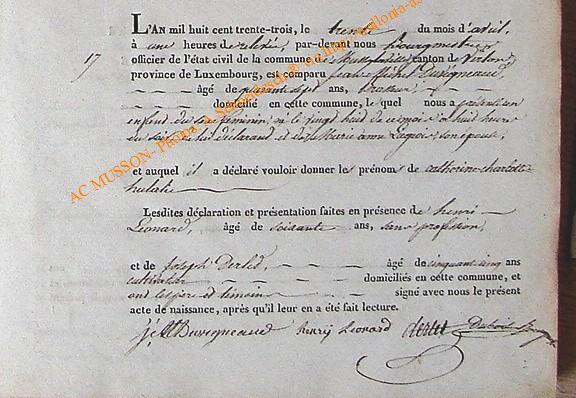 L'AN mil huit cent trente-trois, le trente du mois d'avril,
17 à une heures de relevée, par-devant nous Bourgmestre
officier de l'état civil de la commune de canton de
province de Luxembourg, est comparu jean Michel Duvigneaud,
âgé de quarante sept ans, Brasseur,
domicilié en cette commune, le quel nous a présenté un
enfant du sexe féminin, né le vingt huit de ce mois à huit heures
du soir, de lui déclarand et de Marie anne son épouse,
et auquel il a déclaré vouloir donner les prénoms de catherine-charlotte
Lesdites déclaration et présentation faites en présence de henri
Leonard, âgé de soixante ans, sans profession,
et de Joseph âgé de cinquante cinq ans
cultivateur domiciliés en cette commune, et
ont les père et témoin signé avec nous le présent
acte de naissance, après qu'il leur en a été fait lecture.
henrij Leonard Dubois
AC MUSSON-